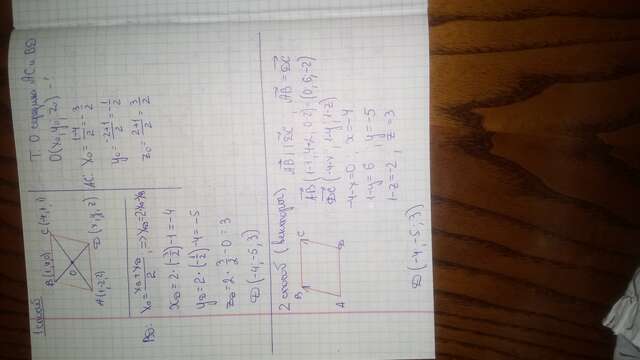 1 способ
B(1,4,0) C(-4,1,1)
O
A(1,-2,2) D(x,y,z)
Т. O середина AC и BD
O(x₀,y₀,z₀) - ?
AC: x₀ = (1-4)/2 = -3/2
y₀ = (-2+1)/2 = -1/2
z₀ = (2+1)/2 = 3/2
BD:
x₀ = (x_B+x_D)/2, => x_D = 2x₀-x_B
x_D = 2·(-3/2)-1 = -4
y_D = 2·(-1/2)-4 = -5
z_D = 2·3/2-0 = 3
D(-4,-5,3)
2 способ (векторов)
B C
A D
AB || DC, AB = DC
AB(1-1,4+2,0-2) = (0,6,-2)
DC(-4-x,1-y,1-z)
-4-x=0, x=-4
1-y=6, y=-5
1-z=-2, z=3
D(-4,-5,3)